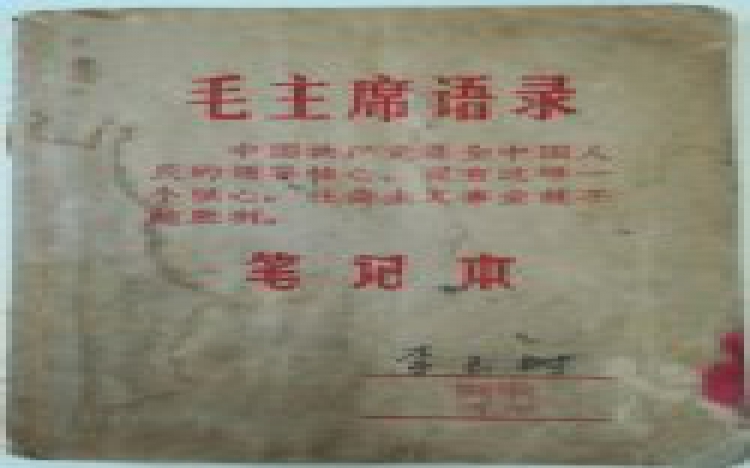 毛主席语录
中国共产党是全中国人
民的领导核心。没有这样一
个核心，社会主义事业就不
能胜利。
笔记本